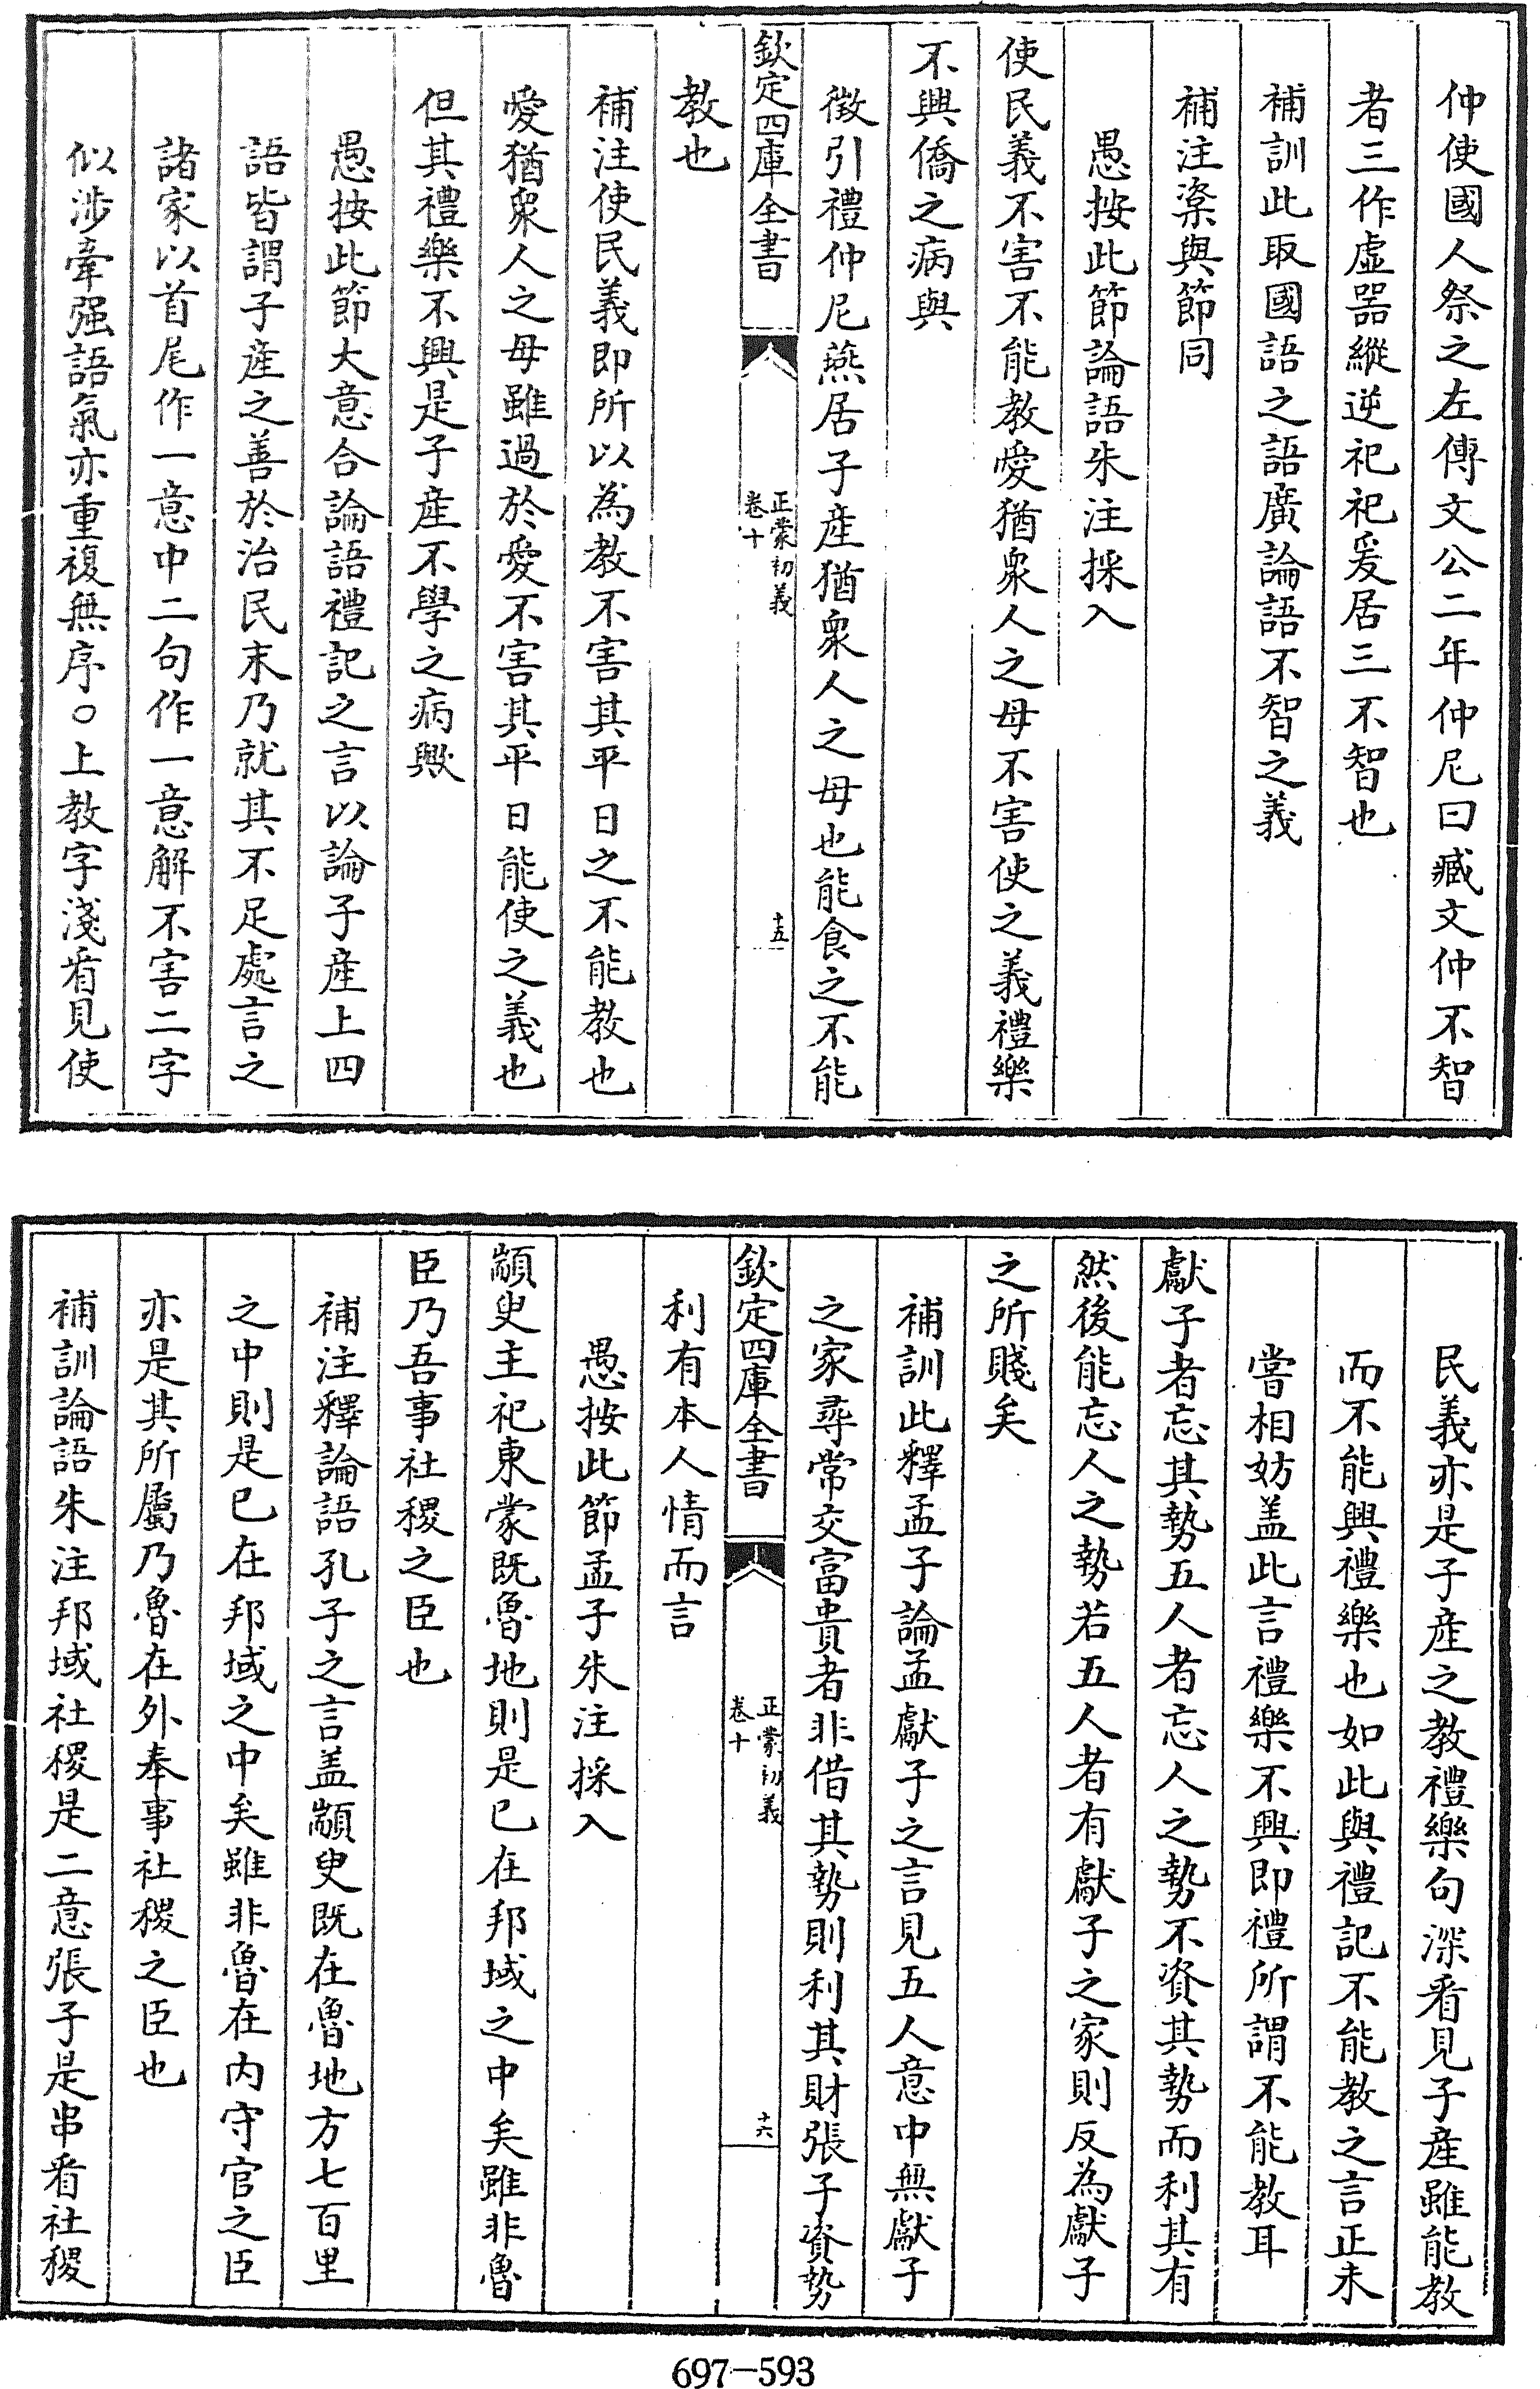 仲使國人祭之左傳文公二年仲尼曰臧文仲不智
者三作虛器縱逆祀祀爰居三不智也
補訓此取國語之語廣論語不智之義
補注楶與節同
愚按此節論語朱注採入
使民義不害不能教愛猶衆人之母不害使之義禮樂
不興僑之病與
徵引禮仲尼燕居子產猶衆人之母也能食之不能
欽定四庫全書
正蒙初義
卷十
十五
教也
補注使民義即所以為教不害其平日之不能教也
愛猶衆人之母雖過於愛不害其平日能使之義也
但其禮樂不興是子產不學之病歟
愚按此節大意合論語禮記之言以論子產上四
語皆謂子產之善於治民末乃就其不足處言之
諸家以首尾作一意中二句作一意解不害二字
似涉牽强語氣亦重複無序○上教字淺看見使
民義亦是子產之教禮樂句深看見子產雖能教
而不能興禮樂也如此與禮記不能教之言正未
嘗相妨盖此言禮樂不興即禮所謂不能教耳
獻子者忘其勢五人者忘人之勢不資其勢而利其有
然後能忘人之勢若五人者有獻子之家則反為獻子
之所賤矣
補訓此釋孟子論孟獻子之言見五人意中無獻子
之家尋常交富貴者非借其勢則利其財張子資勢
欽定四庫全書
正蒙初義
卷十
十六
利有本人情而言
愚按此節孟子朱注採入
顓臾主祀東蒙既魯地則是已在邦域之中矣雖非魯
臣乃吾事社稷之臣也
補注釋論語孔子之言盖顓臾既在魯地方七百里
之中則是已在邦域之中矣雖非魯在内守官之臣
亦是其所屬乃魯在外奉事社稷之臣也
補訓論語朱注邦域社稷是二意張子是串看社稷
697-593